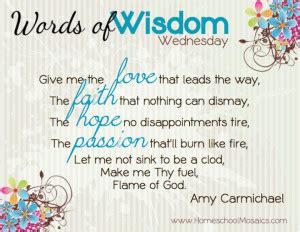 Words of Wisdom
Wednesday
Give me the love that leads the way,
The faith that nothing can dismay,
The hope no disappointments tire,
The passion that'll burn like fire,
Let me not sink to be a clod,
Make me Thy fuel,
Flame of God.
Amy Carmichael
www.HomeschoolMosaics.com